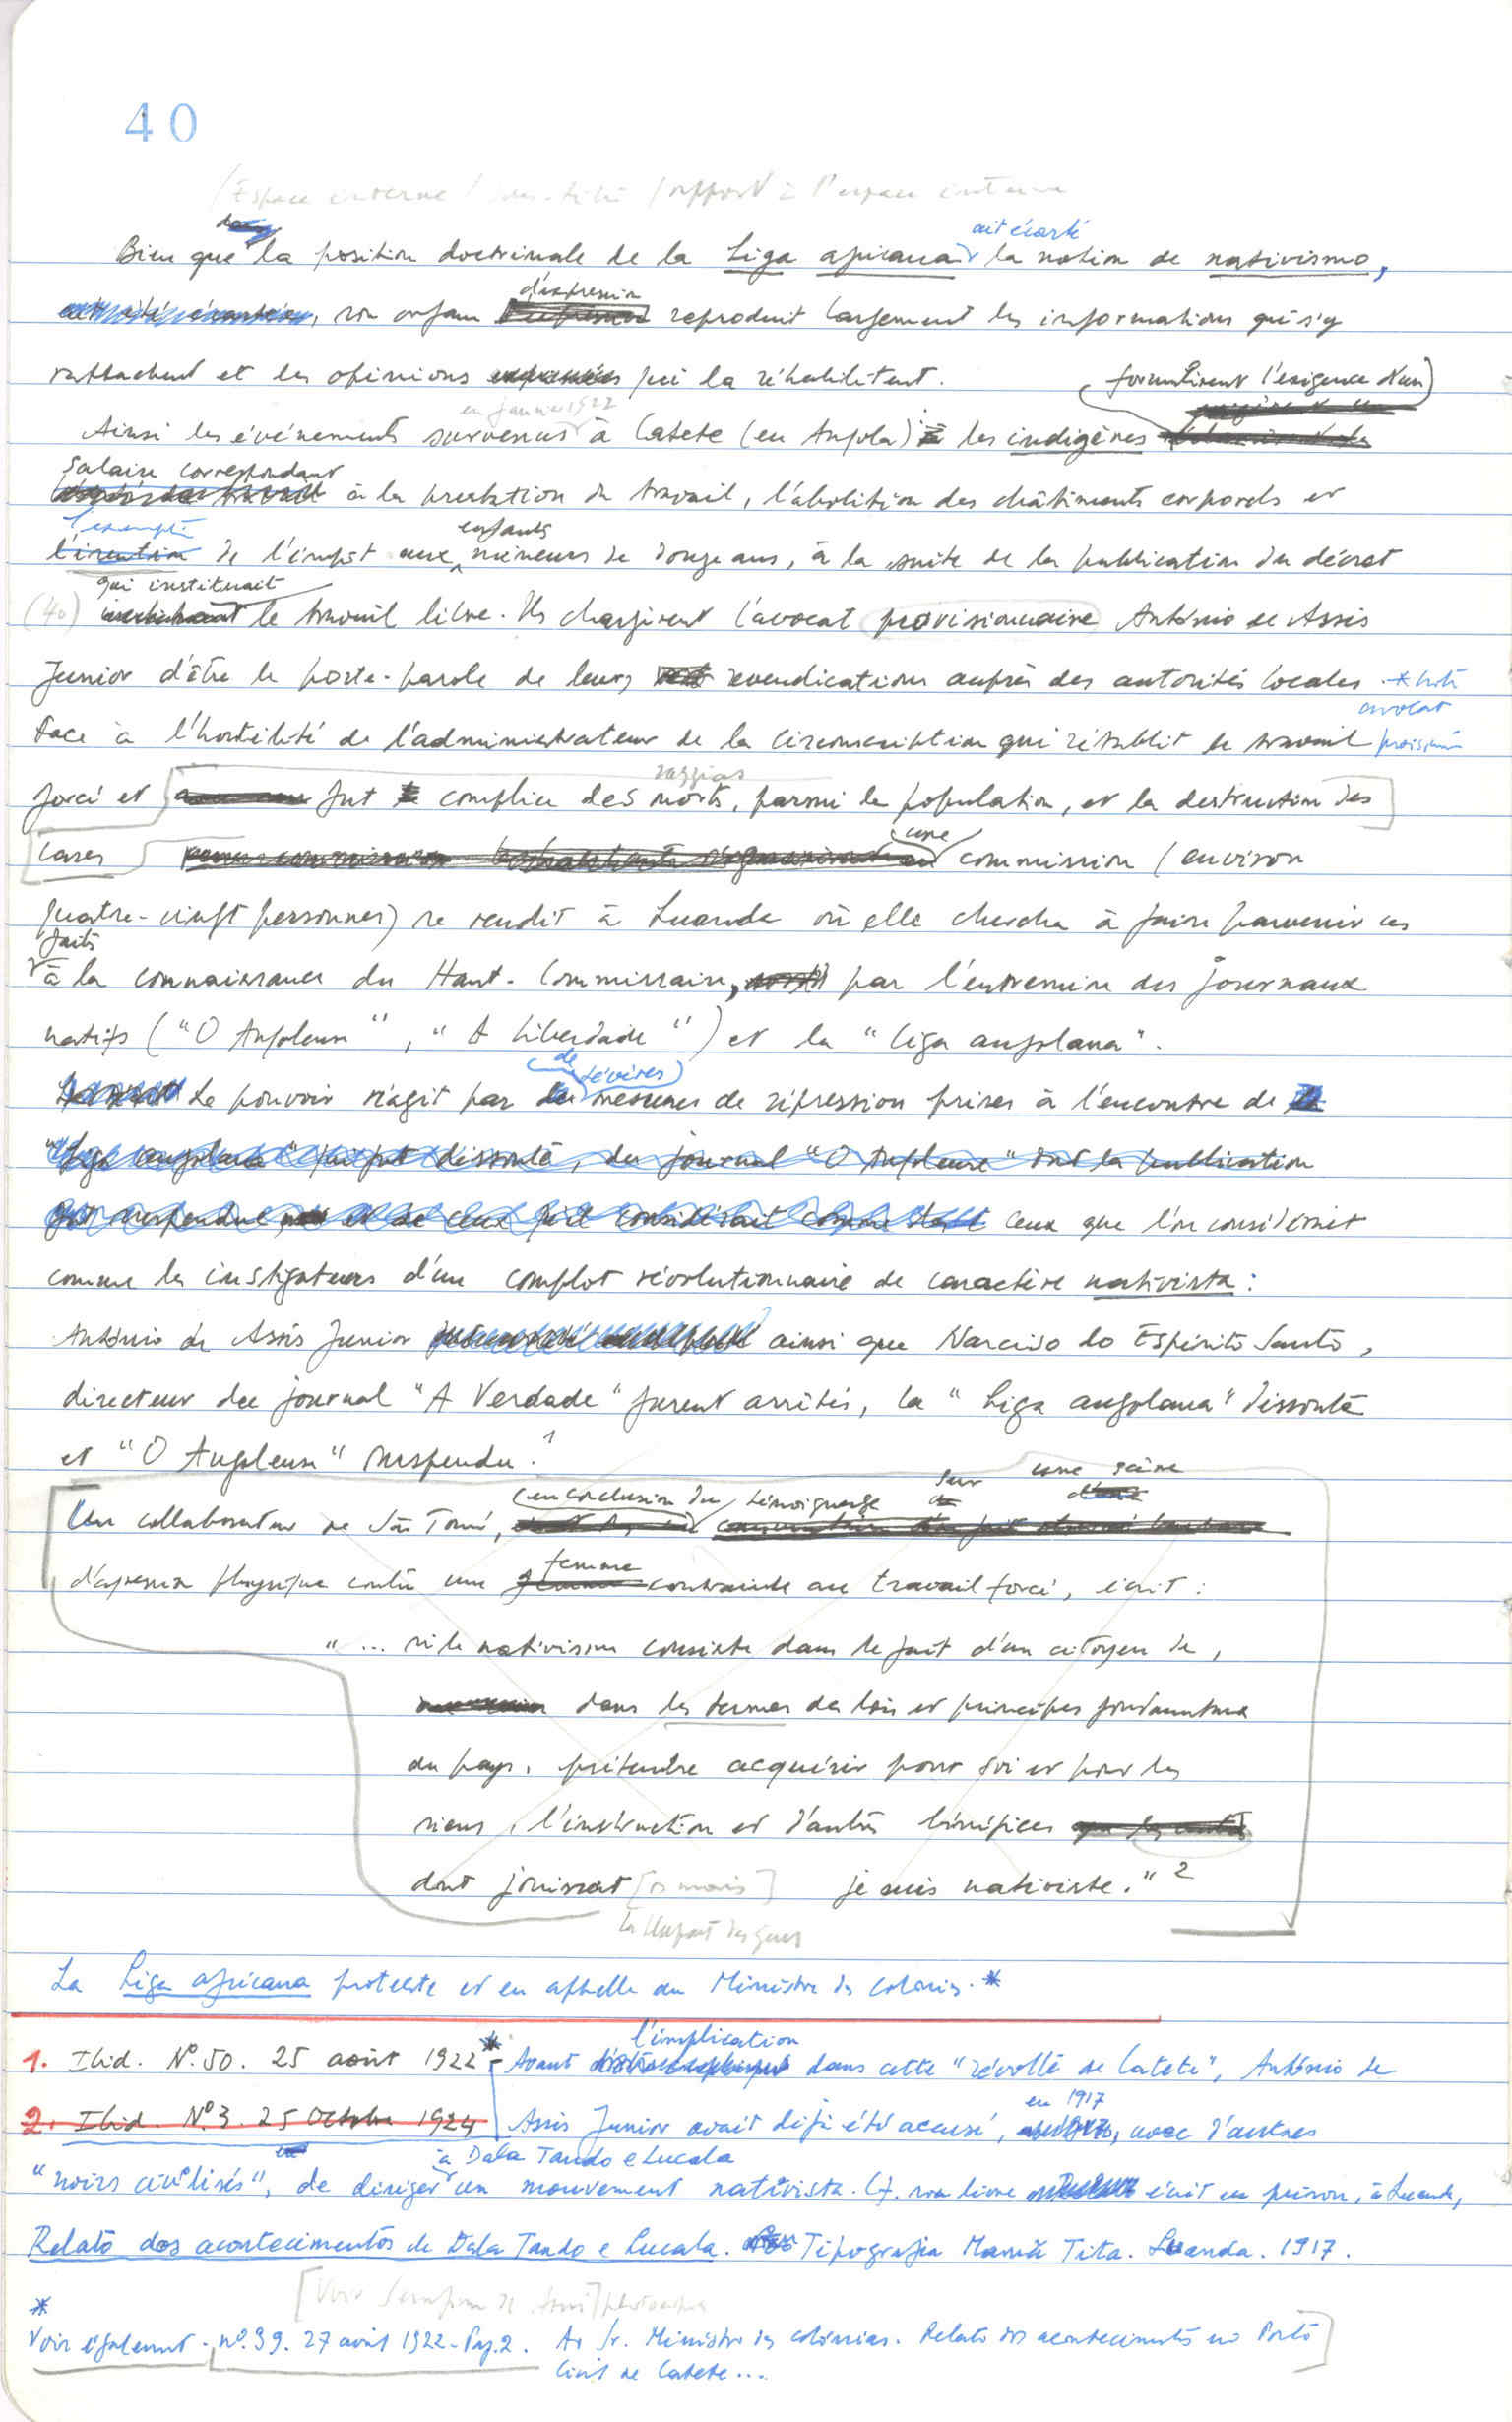 40
Bien que la position doctrinale de la Liga africana ait écarté la notion de nativismo,
son organe d'expression reproduit largement les informations qui s'y
rattachent et les opinions qui la réhabilitent.
en janvier 1922
formulèrent l'exigence d'un
Ainsi les événements survenus à Catete (en Angola) : les indigènes
salaire correspondant à la prestation du travail, l'abolition des châtiments corporels et
l'exemption de l'impôt aux enfants mineurs de douze ans, à la suite de la publication du décret
(40) qui instituait le travail libre. Ils chargèrent l'avocat provisionnaire António de Assis
Junior d'être le porte-parole de leurs revendications auprès des autorités locales. *
avocat
Face à l'hostilité de l'administrateur de la circonscription qui rétablit le travail
forcé et fut complice des morts, parmi la population, et la destruction des
razzias
cases une commission (environ
quatre-vingt personnes) se rendit à Luanda où elle chercha à faire parvenir ces
faits à la connaissance du Haut-Commissaire, par l'entremise des journaux
natifs ("O Angolense", "A Liberdade") et la "Liga angolana".
Le pouvoir réagit par de sévères mesures de répression prises à l'encontre de
"Liga angolana" qui fut dissoute, du journal "O Angolense" dont la publication
fut suspendue et de ceux qu'il considérait comme ceux que l'on considérait
comme les instigateurs d'un complot révolutionnaire de caractère nativista :
António de Assis Junior ainsi que Narciso do Espírito Santo,
directeur du journal "A Verdade" furent arrêtés, la "Liga angolana" dissoute
et "O Angolense" suspendu.1
Un collaborateur de São Tomé, en conclusion du témoignage sur une scène
d'agression physique contre une femme contrainte au travail forcé, écrit :
"... si le nativisme consiste dans le fait d'un citoyen de,
dans les termes des lois et principes fondamentaux
du pays, prétendre acquérir pour soi et pour les
siens, l'instruction et d'autres bénéfices
dont jouissent [os mais] je suis nativiste." 2
la plupart des gens
La Liga africana proteste et en appelle au Ministre des Colonies. *
1. Ibid. Nº. 50. 25 août 1922
2. Ibid. Nº 3. 25 Octobre 1924
* Avant l'implication dans cette "révolte de Catete", António de
Assis Junior avait déjà été accusé, en 1917, avec d'autres
"noirs civilisés", de diriger à Dala Tando e Lucala un mouvement nativista. Cf. son livre écrit en prison, à Luanda,
Relato dos acontecimentos de Dala Tando e Lucala. Tipografia Mamã Tita. Luanda. 1917.
*
Voir également. nº. 39. 27 avril 1922. Pag. 2. Ao Sr. Ministro das colónias. Relato dos acontecimentos no Posto
Civil de Catete...